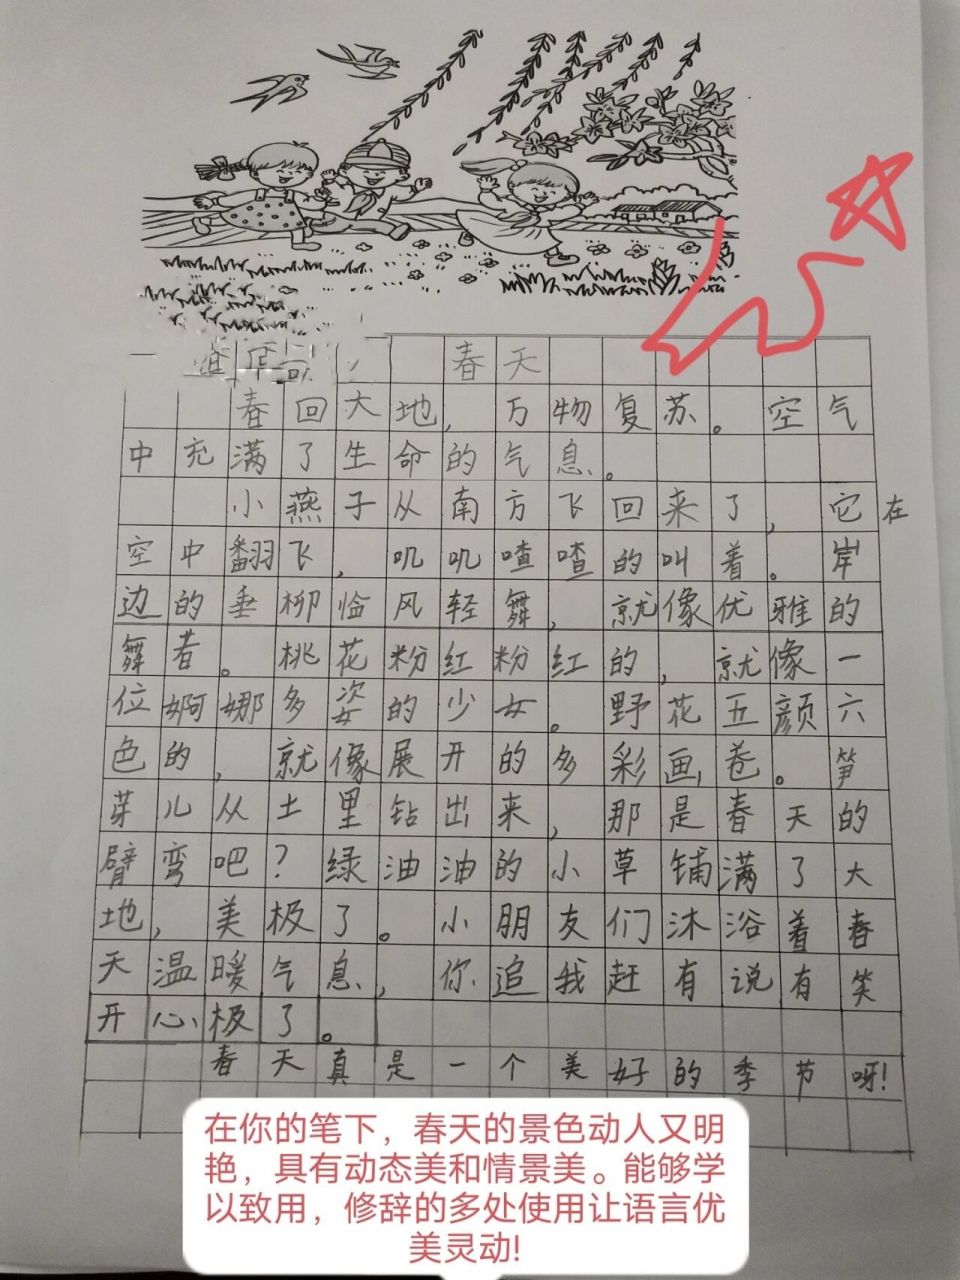 春天
春回大地，万物复苏。空气
中充满了生命的气息。
小燕子从南方飞回来了，它在
空中翻飞，叽叽喳喳的叫着。岸
边的垂柳临风轻舞，就像优雅的
舞者。桃花粉红粉红的，就像一
位婀娜多姿的少女。野花五颜六
色的，就像展开的多彩画卷。笋
芽儿从土里钻出来，那是春天的
臂弯吧？绿油油的小草铺满了大
地，美极了。小朋友们沐浴着春
天温暖气息，你追我赶有说有笑
开心极了。
春天真是一个美好的季节呀！
在你的笔下，春天的景色动人又明
艳，具有动态美和情景美。能够学
以致用，修辞的多处使用让语言优
美灵动!